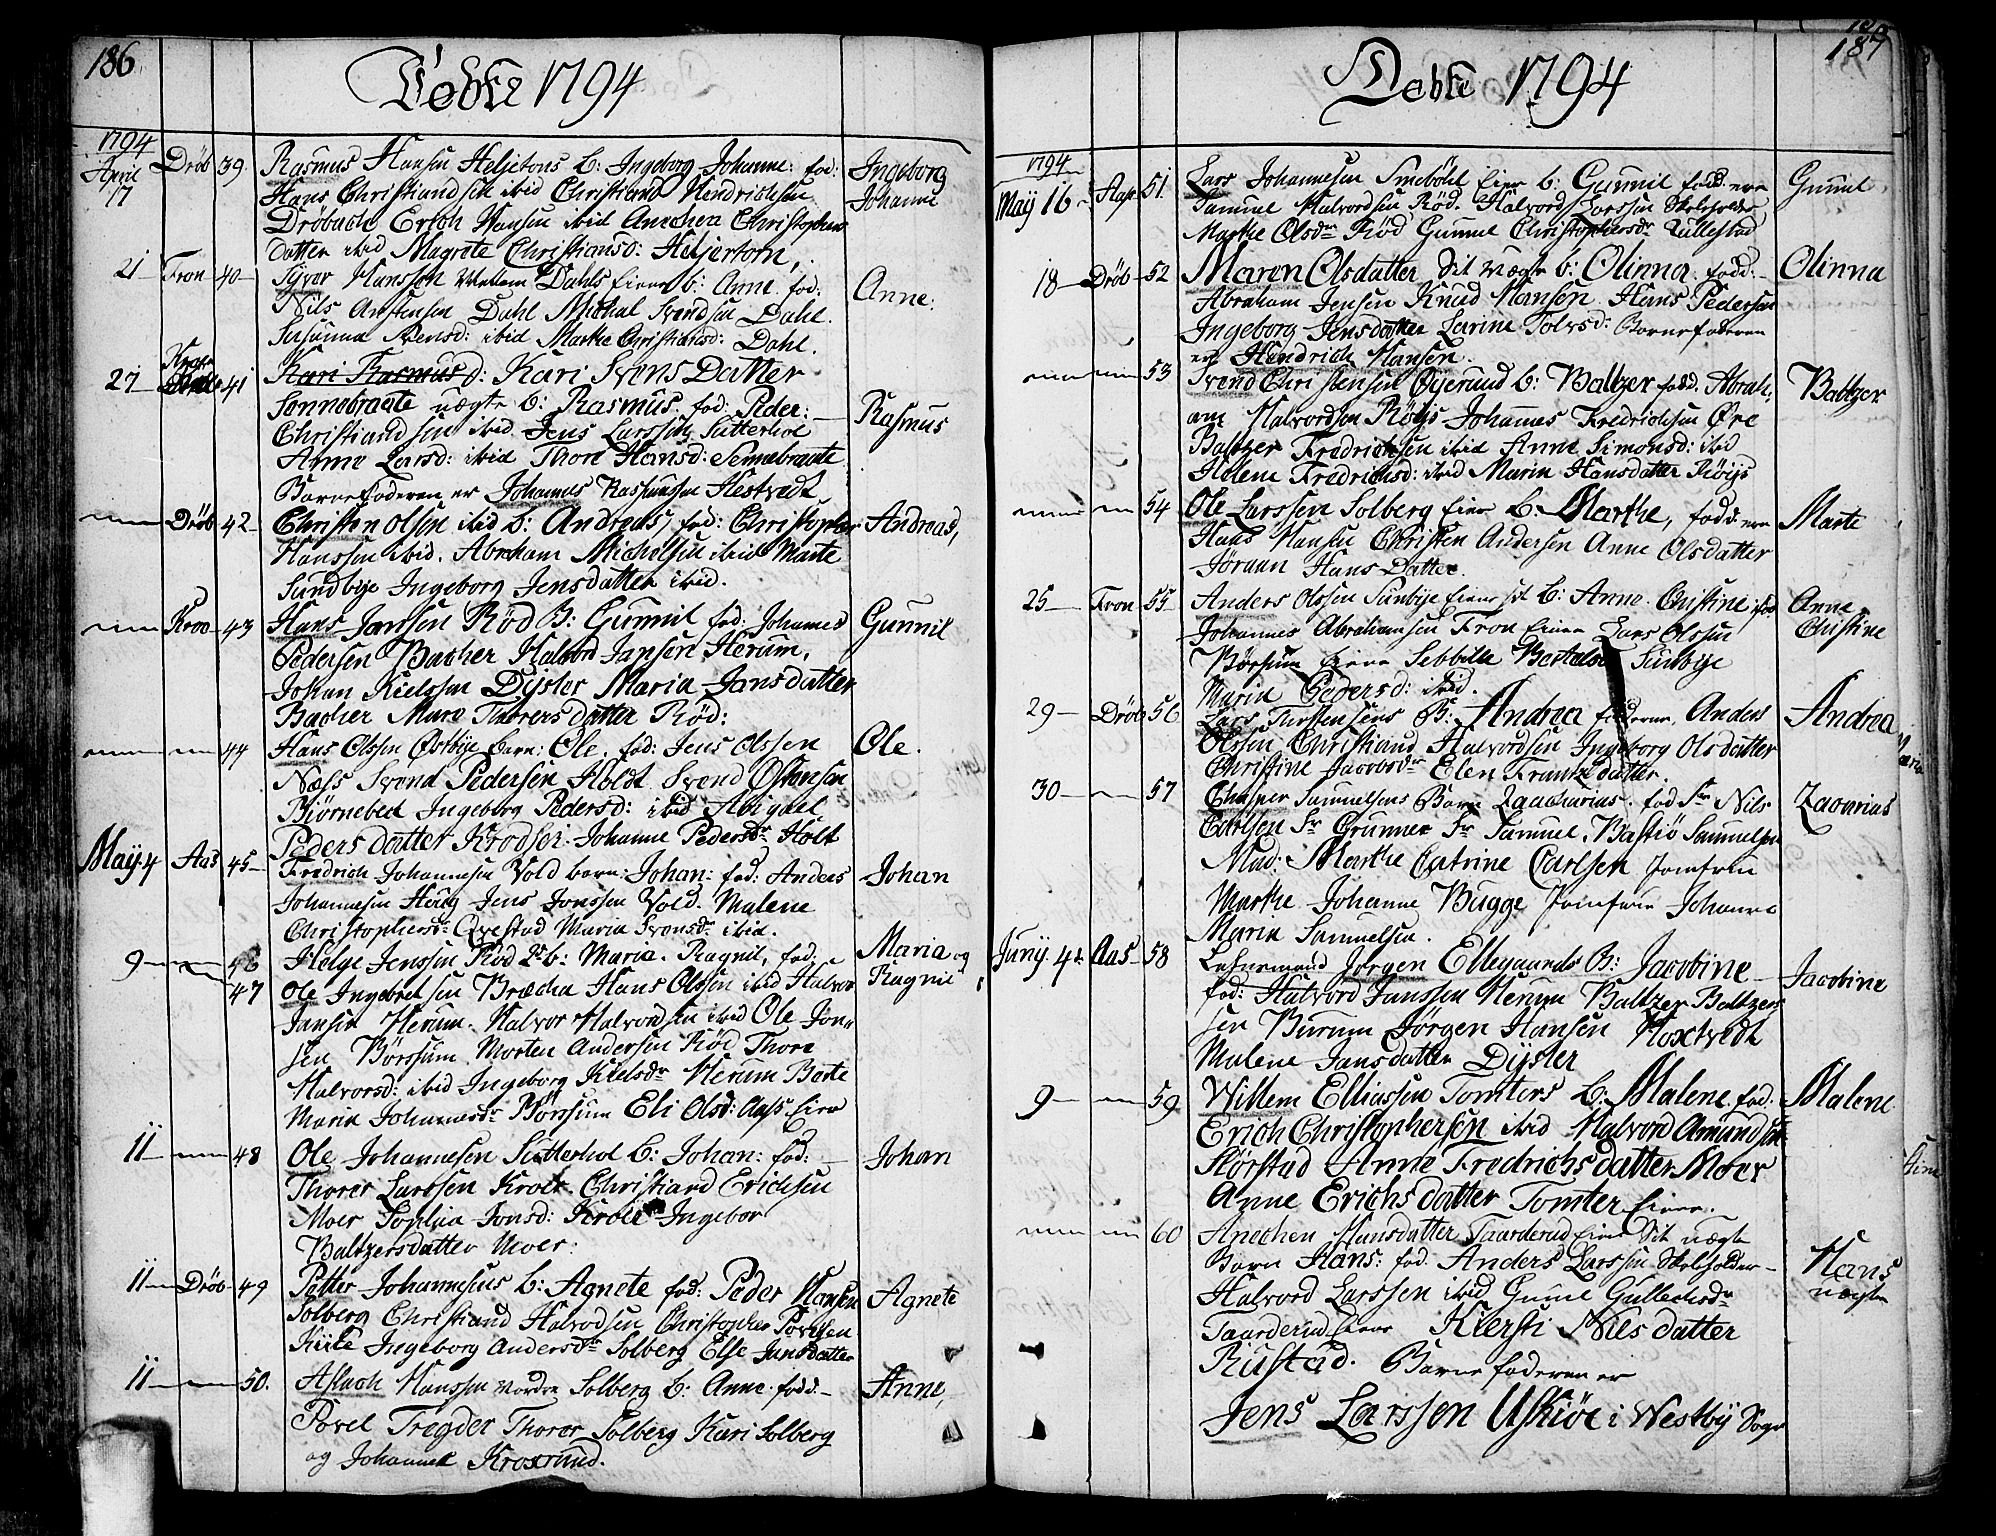 186
Døbte 1794
1794
April 17 Dröb 39. Rasmus Hansen Heljetons b: Ingeborg Johanne: fod: Ingeborg Johanne
Hans Christiansen ibid Christian Hendrichsen
Drøbach Erich Hansen ibid Anechea Christophers
datter ibid Magrete Christiansd: Heljertorn,
21 Fron 40 Syver Hansson Mellem Dahls Eier b: Anne. fod: Anne:
Nils Anstensen Dahl Michal Svendsen Dahl.
Susanna Svensd: ibid Marthe Christiansd: Dahl.
27 Kroe 41 Kari Rasmusd: Kari Svens Datter
Sonnebraate uægte b: Rasmus. fod: Peder: Rasmus
Christiansen ibid Jens Larssen Sutterhol
Anne Larsd: ibid Thore Hansd: Sennebraate
Barnefaderen er Johannes Rasmussen Hestvedt
Dröb 42 Christen Olsen ibid b: Andreas, fod: Christopher Andreas,
Hanssen ibid. Abraham Michelsen ibid Marte
Sundbye Ingeborg Jensdatter ibid.
Kroe 43 Hans Janssen Röd B: Gunnil fod: Johannes Gunnil
Pedersen Bacher Halvord Jansen Herum,
Johan Kielssen Dysler Maria Jansdatter
Bacher Mare Thorersdatter Röd:
44 Hans Olssen Østbye barn: Ole. fod: Jens Olssen Ole.
Næss Svend Pedersen Holdt Svend Ostensen
Bjørnebed Ingeborg Pedersd: ibid Abigael
Pedersdatter Krodser. Johanne Pedersdr Holt
May 4 Aas 45 Fredrich Johannesen Vold barn: Johan: fod: Anders Johan
Johannesen Houg Jens Jonssen Vold. Malene
Christophersdr Qvestad Maria Svensdr ibid.
9 46 Helge Jenssen Röd 2de b: Maria. Ragnil, fod: Maria og
47 Ole Ingebretsen Brecha Hans Olssen ibid Halvor Ragnil
Jansen Herum. Halvor Halvordsen ibid Ole Jon-
sen Börssum Morten Andersen Röd Thora
Halvorsd: ibid Ingeborg Kielsdr Herum Berte
Maria Johannesdr Börssum Eli Olsd: Aass Eier
11 48 Ole Johannesen Sutterhol b: Johan: fod: Johan
Thorer Larssen Kroer. Christian Erichsen
Moer Sophia Jonsd: Kroer Ingebor
Baltzersdatter Moer:
11 Dröb 49 Petter Johannesens b: Agnete fod: Peder Hansen Agnete
Solberg Christian Halvodsen Christopher Povelsen
Kiile Ingeborg Andersdr Solberg Else Jansdatter
11 50. Aslach Hanssen Nordre Solberg b: Anne. fodd. Anne,
Povel Tregder Thorer Solberg Kari Solberg
og Johannes Kroxrud.
187
Døbte 1794
1794
May 16 Aas 51. Lars Johannesen Smeböhl Eier b: Gunnil fodd. ere Gunnil
Samuel Halvordsen Röd. Halvord Larssen Skelholder
Marthe Olsdr Röd Gunnil Christophersdr Lillestad
18 Dröb 52 Maren Olsdatter. Sit uægte b: Olinna. fadd: Olinna
Abraham Jensen Knud Hansen. Hans Pedersen
Ingeborg Jensdatter Larine Tolvsd: Barnefaderen
er Hendrich Hansen.
53 Svend Christensen Øyerund b: Baltzer fodd. Abrah: Baltzer
am Halvordsen Röys Johannes Fredrichsen Øre
Baltzer Fredrichsen ibid Anne Simonsd: ibid
Helene Fredrichsd: ibid Marin Hansdatter Röys
54 Ole Larssen Solberg Eier b: Marthe, fodd: ere Marte
Hans Hansen Christen Andersen Anne Olsdatter
Jöraan Hans Datter.
25 Fron 55 Anders Olssen Sunbye Eier sit b: Anne. Christine fod Anne Christine
Johannes Abrahamsen Fron Eier Lars Olssen
Börsum Eier Sebbille Bertelsd Sunbye
Maria Pedersd: ibid.
29 Dröb 56 Lars Torstensens B: Andrea Faderne. Anders Andrea
Olssen Christian Halvordsen Ingeborg Olsdatter
Christine Jacobsdr Elen Frantzdatter.
30 57 Chasper Samuelsens Barn Zaacharias. fod Sr Nils Zacarias
Carlsen Sr Grunner Sr Samuel. Bastiö Samuelsen
Mad: Marthe Catrine Carlsen Jomfrue
Marthe Johanne Bugge Jomfrue Johanne
Maria Samuelsen.
Juny 4 Aas 58 Lehnsmand Jørgen Ellegaards B: Jacobine Jacobine
fod: Halvord Janssen Herum Baltzer Baltzers
sen Burum Jörgen Hansen Hoxtvedt
Malene Jansdatter Dysler
9 59 Willem Elliassen Tomters b. Malene. fod. Malene
Erich Christophersen ibid Halvord Amundsen
Störstad Anne Fredrichsdatter Moer
Anne Erichsdatter Tomter Eier.
60 Anechen Hansdatter Taarderud Eier Sit uægte
Barn Hans: fod. Anders Larssen Skelholder Hans uægte
Halvord Larssen ibid Gunil Gullechsdr
Taarderud Eier Kiersti Nilsdatter
Rustad. Barne faderen er
Jens Larssen Uskiöe i Westby Sogn